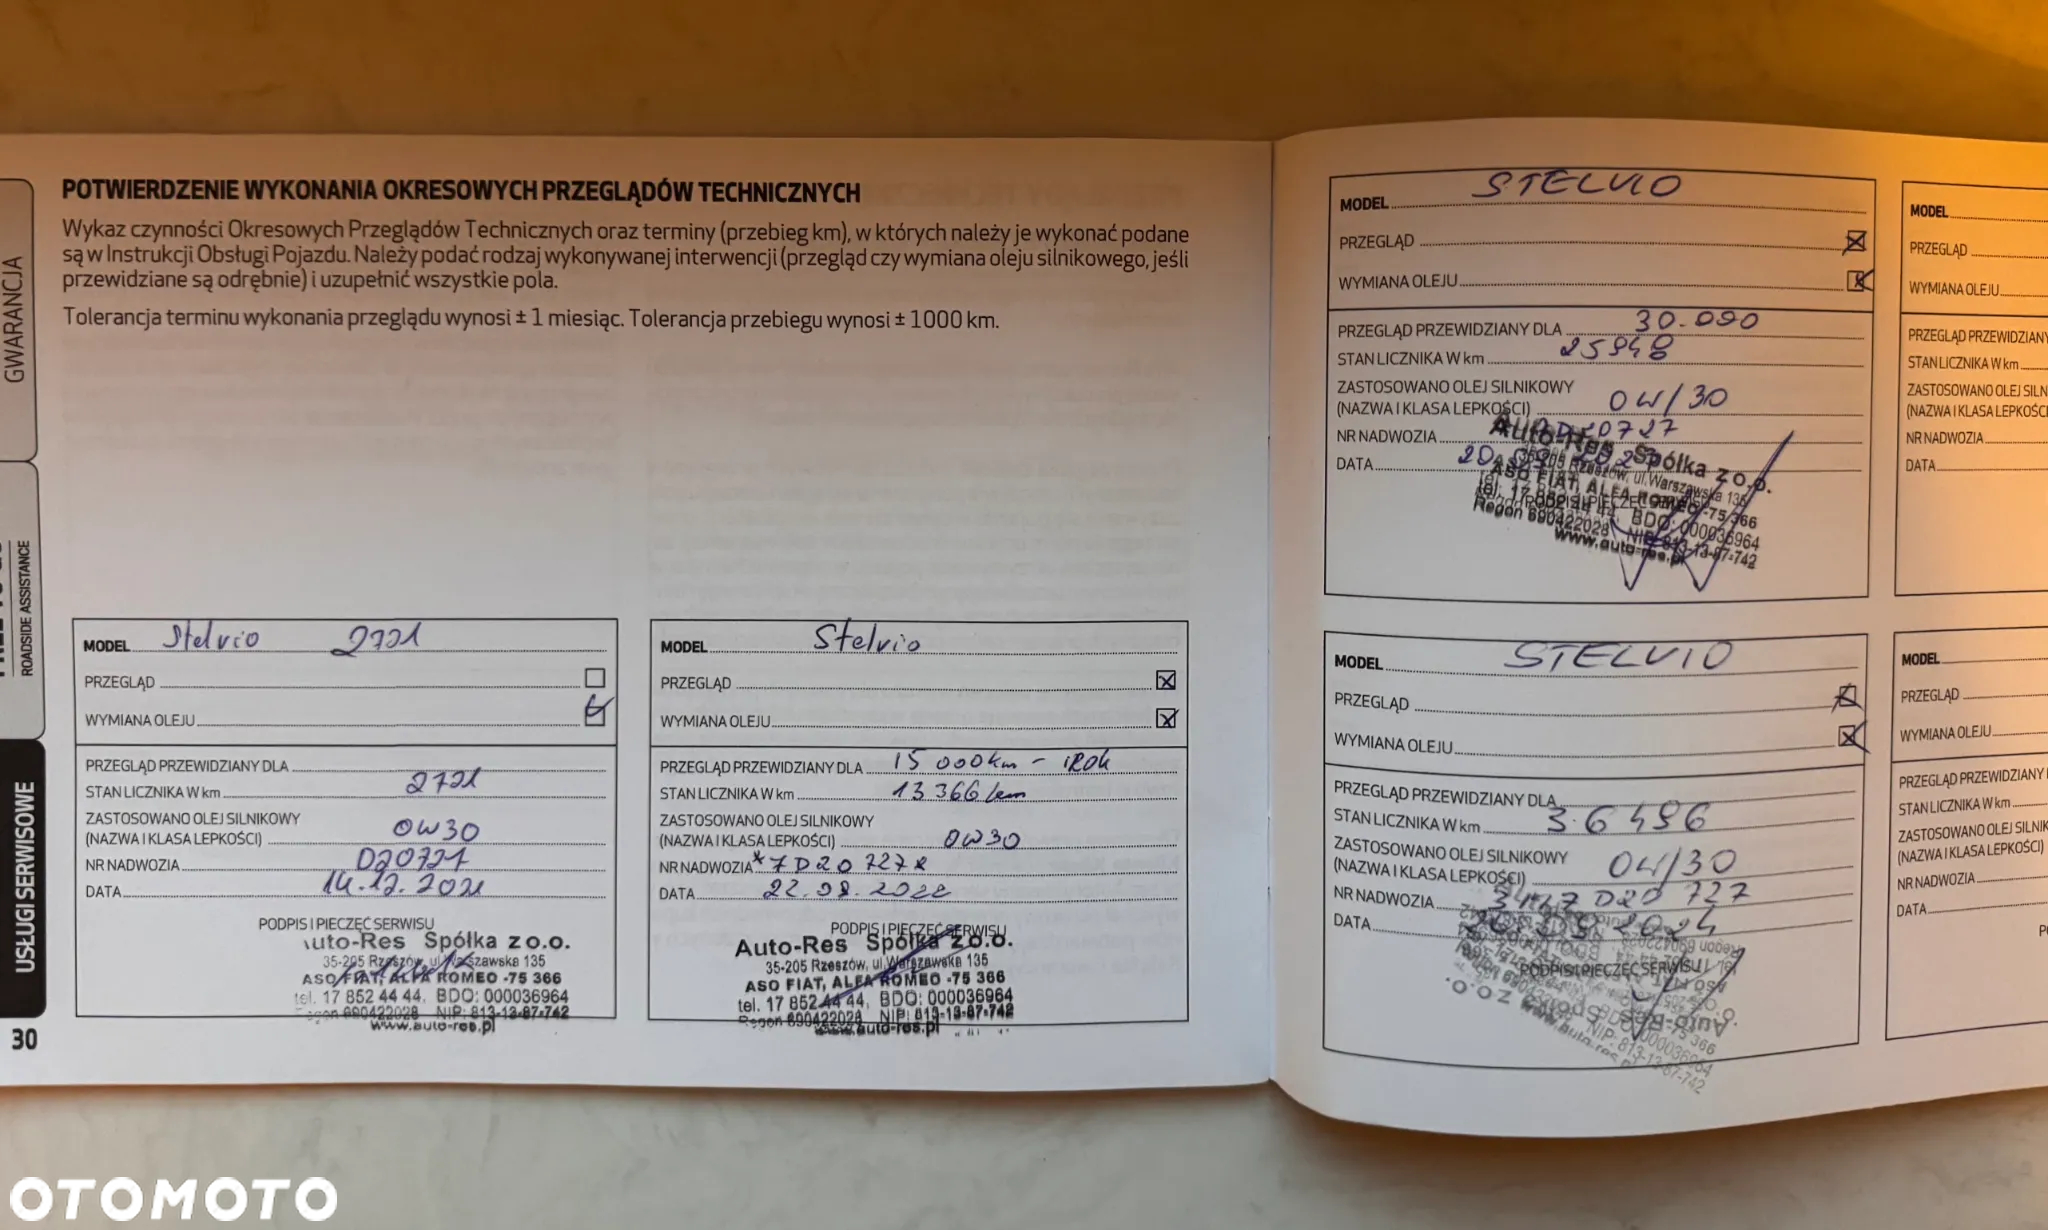 GWARANCJA
ROADSIDE ASSISTANCE
USŁUGI SERWISOWE
30
POTWIERDZENIE WYKONANIA OKRESOWYCH PRZEGLĄDÓW TECHNICZNYCH
Wykaz czynności Okresowych Przeglądów Technicznych oraz terminy (przebieg km), w których należy je wykonać podane
są w Instrukcji Obsługi Pojazdu. Należy podać rodzaj wykonywanej interwencji (przegląd czy wymiana oleju silnikowego, jeśli
przewidziane są odrębnie) i uzupełnić wszystkie pola.
Tolerancja terminu wykonania przeglądu wynosi ± 1 miesiąc. Tolerancja przebiegu wynosi ± 1000 km.
MODEL Stelvio 2721
PRZEGLĄD
WYMIANA OLEJU
PRZEGLĄD PRZEWIDZIANY DLA
STAN LICZNIKA W km 2721
ZASTOSOWANO OLEJ SILNIKOWY
(NAZWA I KLASA LEPKOŚCI) 0W30
NR NADWOZIA
DATA 14.12.2021
PODPIS I PIECZĘĆ SERWISU
Auto-Res Spółka z o.o.
35-205 Rzeszów, ul. Warszawska 135
ASO FIAT, ALFA ROMEO -75 366
tel. 17 852 44 44, BDO: 000036964
Regon 690422028 NIP: 813-13-87-742
www.auto-res.pl
MODEL Stelvio
PRZEGLĄD
WYMIANA OLEJU
PRZEGLĄD PRZEWIDZIANY DLA 15 000km - 1Rok
STAN LICZNIKA W km 13 366 km
ZASTOSOWANO OLEJ SILNIKOWY
(NAZWA I KLASA LEPKOŚCI) 0W30
NR NADWOZIA
DATA 22.08.2022
PODPIS I PIECZĘĆ SERWISU
Auto-Res Spółka z o.o.
35-205 Rzeszów, ul. Warszawska 135
ASO FIAT, ALFA ROMEO -75 366
tel. 17 852 44 44, BDO: 000036964
Regon 690422028 NIP: 813-13-87-742
www.auto-res.pl
MODEL STELVIO
PRZEGLĄD
WYMIANA OLEJU
PRZEGLĄD PRZEWIDZIANY DLA 30.000
STAN LICZNIKA W km 25948
ZASTOSOWANO OLEJ SILNIKOWY
(NAZWA I KLASA LEPKOŚCI) 0W/30
NR NADWOZIA 7D20727
DATA
PODPIS I PIECZĘĆ SERWISU
Auto-Res Spółka z o.o.
35-205 Rzeszów, ul. Warszawska 135
ASO FIAT, ALFA ROMEO -75 366
tel. 17 852 44 44, BDO: 000036964
Regon 690422028 NIP: 813-13-87-742
www.auto-res.pl
MODEL STELVIO
PRZEGLĄD
WYMIANA OLEJU
PRZEGLĄD PRZEWIDZIANY DLA
STAN LICZNIKA W km 36496
ZASTOSOWANO OLEJ SILNIKOWY
(NAZWA I KLASA LEPKOŚCI) 0W/30
NR NADWOZIA D20 727
DATA 2024
PODPIS I PIECZĘĆ SERWISU
Auto-Res Spółka z o.o.
NIP: 813-13-87-742
www.auto-res.pl
MODEL
PRZEGLĄD
WYMIANA OLEJU
PRZEGLĄD PRZEWIDZIANY
STAN LICZNIKA W km
ZASTOSOWANO OLEJ SILN
(NAZWA I KLASA LEPKOŚC
NR NADWOZIA
DATA
MODEL
PRZEGLĄD
WYMIANA OLEJU
PRZEGLĄD PRZEWIDZIANY
STAN LICZNIKA W km
ZASTOSOWANO OLEJ SILNIK
(NAZWA I KLASA LEPKOŚCI)
NR NADWOZIA
DATA
OTOMOTO